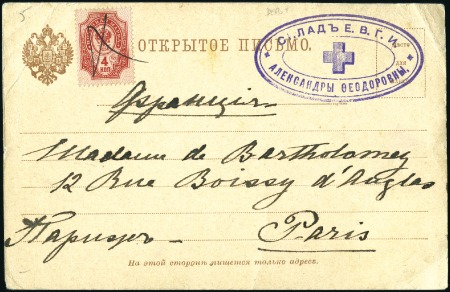 4
КОП
ОТКРЫТОЕ ПИСЬМО.
СКЛАДЪ Е. В. Г. И.
АЛЕКСАНДРЫ ѲЕОДОРОВНЫ.
Франція
Madame de Bartholomey
12 Rue Boissy d'Anglas
Парижъ — Paris
На этой сторонѣ пишется только адресъ.